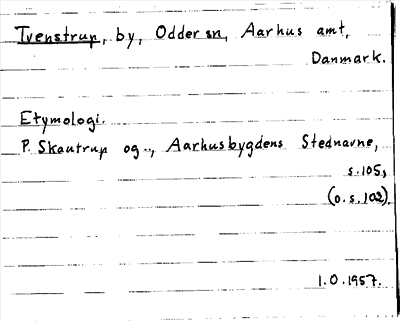 Tvenstrup, by, Odder sn, Aarhus amt,
Danmark.
Etymologi.
P. Skautrup og.., Aarhusbygdens Stednavne,
s.105,
(o.s.102)
1.0.1957.